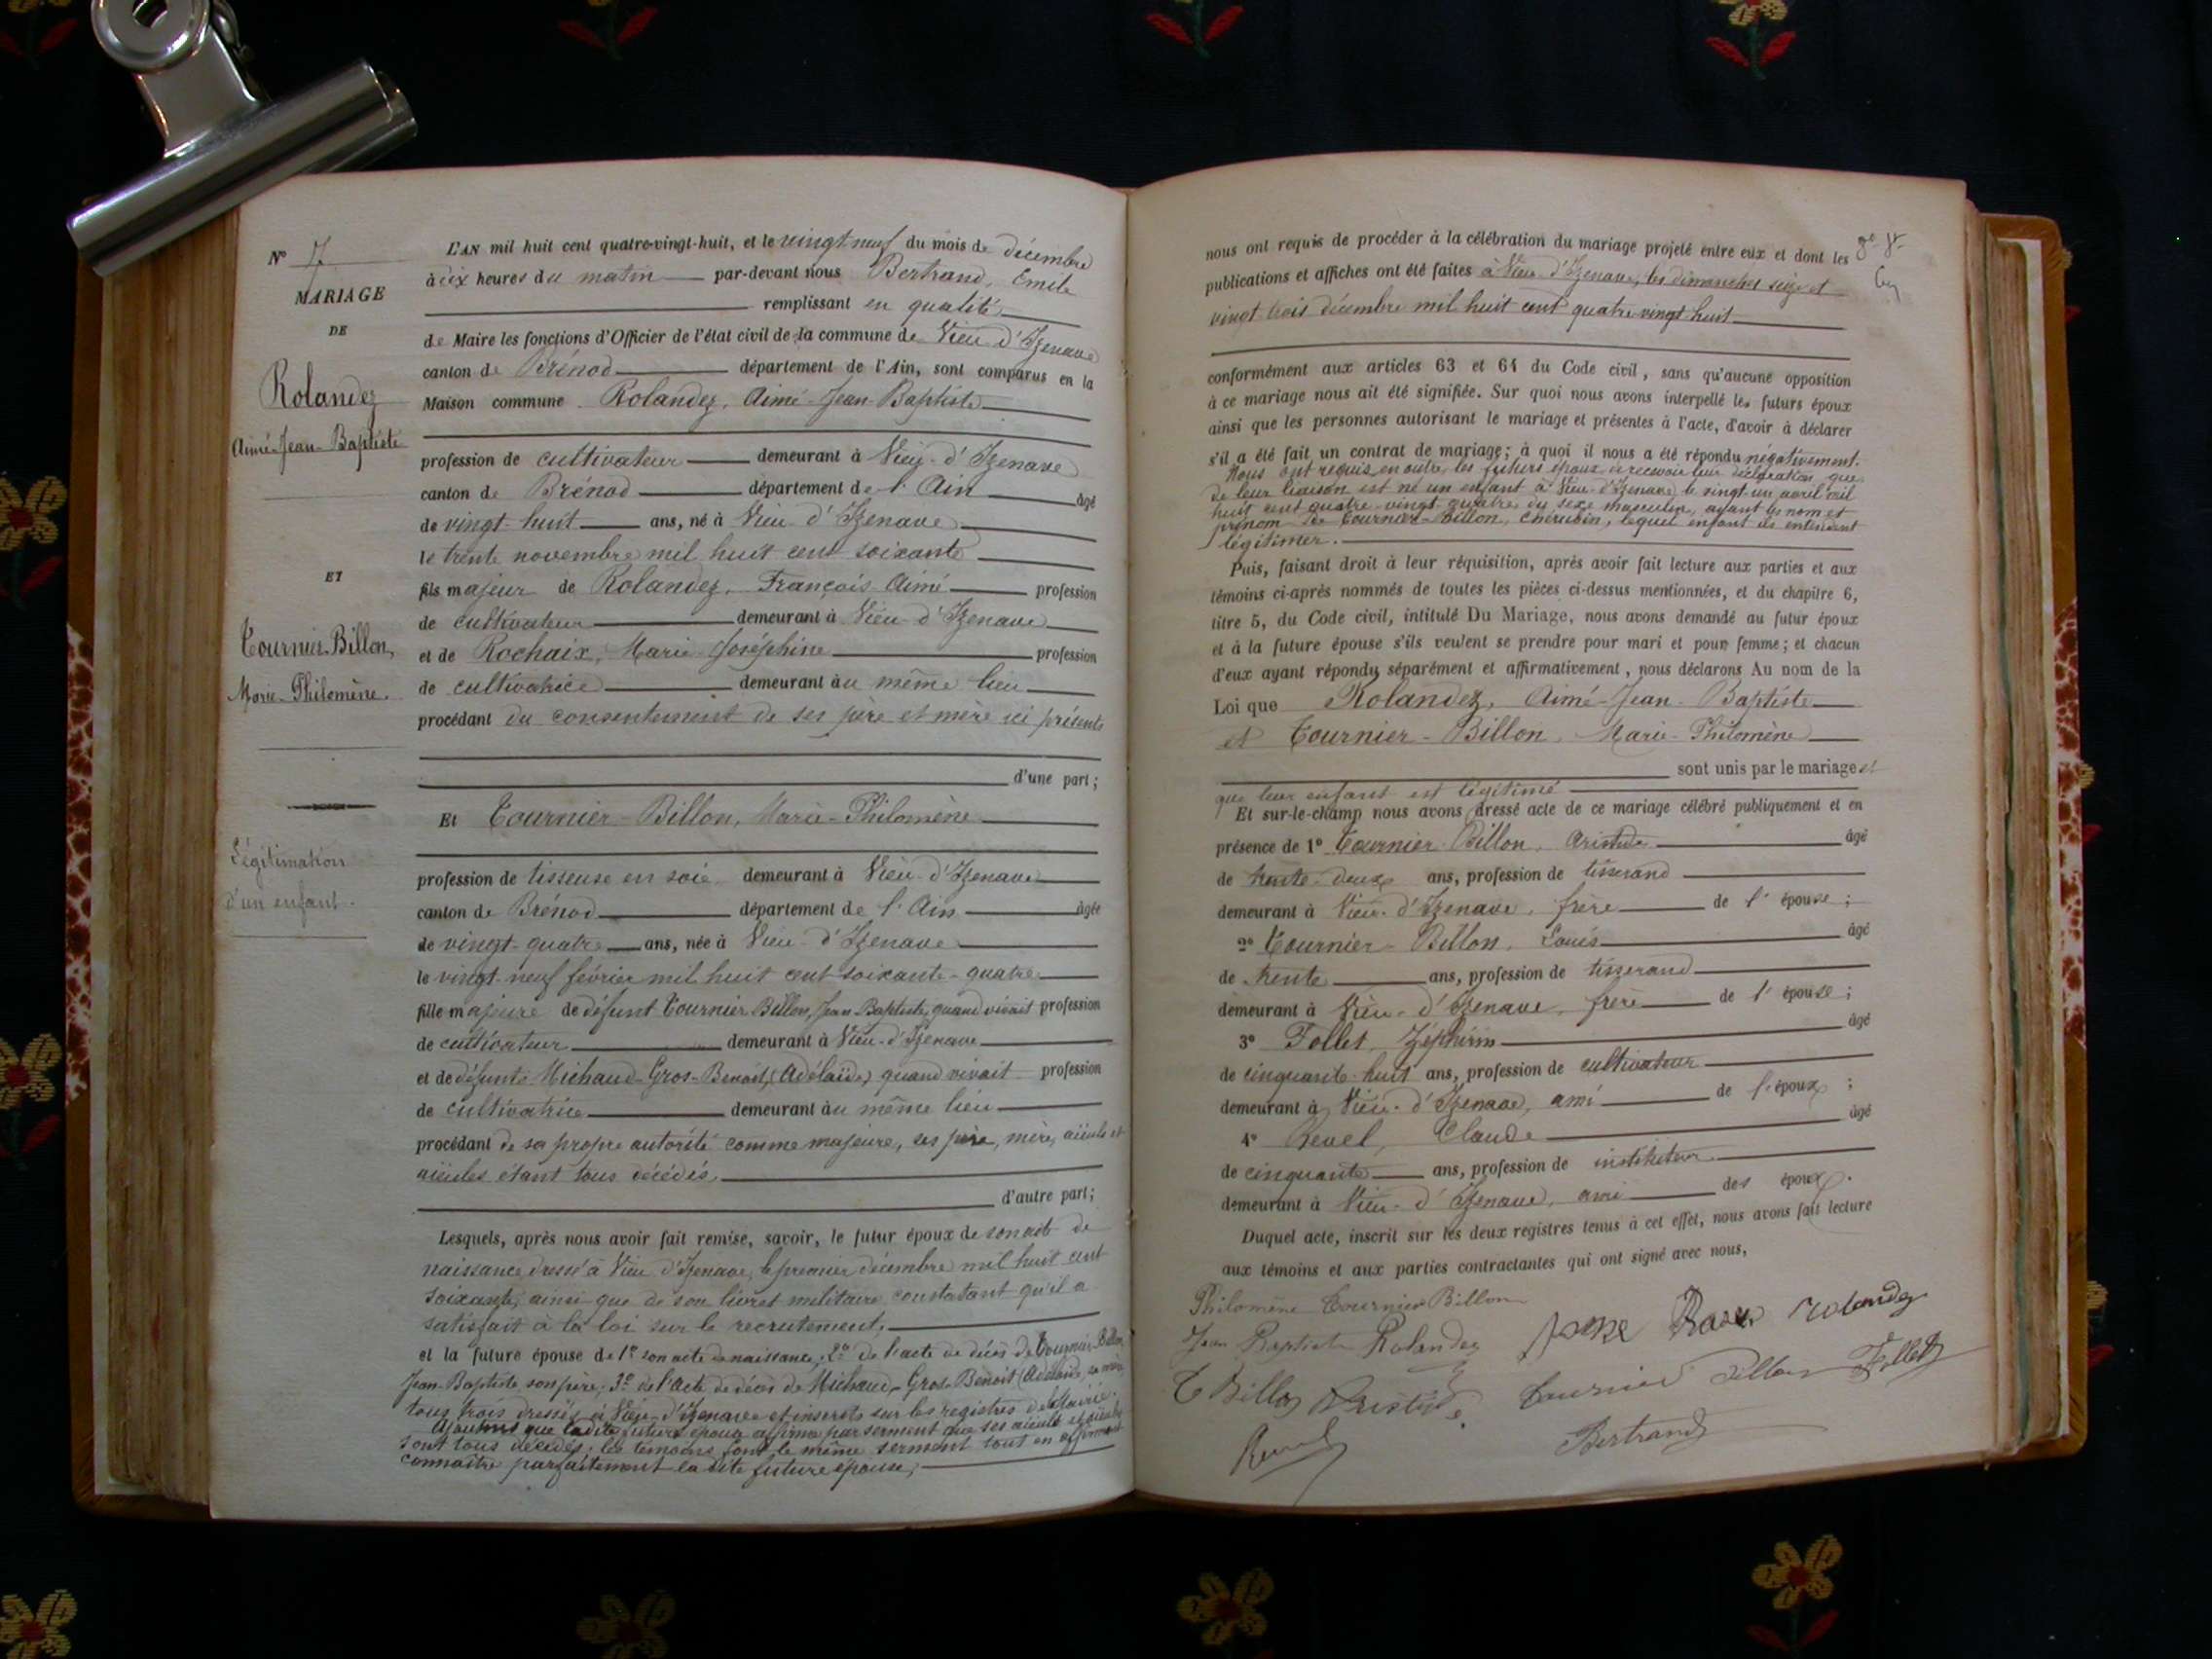 N° 7
MARIAGE
DE
Rolandez
Aimé-Jean-Baptiste
ET
Tournier-Billon,
Marie-Philomène.
Légitimation
d'un enfant.
L'AN mil huit cent quatre-vingt-huit, et le vingt neuf du mois de décembre
à dix heures du matin par-devant nous Bertrand, Emile
remplissant en qualité
de Maire les fonctions d'Officier de l'état civil de la commune de Vieu-d'Izenave
canton de Brénod département de l'Ain, sont comparus en la
Maison commune Rolandez, Aimé-Jean-Baptiste
profession de cultivateur demeurant à Vieu-d'Izenave
canton de Brénod département de l'Ain âgé
de vingt-huit ans, né à Vieu-d'Izenave
le trente novembre mil huit cent soixante
fils majeur de Rolandez, François-Aimé profession
de cultivateur demeurant à Vieu-d'Izenave
et de Rochaix, Marie-Joséphine profession
de cultivatrice demeurant au même lieu
procédant du consentement de ses père et mère ici présents
d'une part;
Et Tournier-Billon, Marie-Philomène
profession de tisseuse en soie demeurant à Vieu-d'Izenave
canton de Brénod département de l'Ain âgée
de vingt-quatre ans, née à Vieu-d'Izenave
le vingt-neuf février mil huit cent soixante-quatre
fille majeure de défunt Tournier Billon, Jean-Baptiste, quand vivait profession
de cultivateur demeurant à Vieu-d'Izenave
et de défunte Michaud-Gros-Benoit, (Adélaïde) quand vivait profession
de cultivatrice demeurant au même lieu
procédant de sa propre autorité comme majeure, ses père, mère, aïeuls et
aïeules étant tous décédés.
d'autre part;
Lesquels, après nous avoir fait remise, savoir, le futur époux de son acte de
naissance dressé à Vieu d'Izenave, le premier décembre mil huit cent
soixante, ainsi que de son livret militaire constatant qu'il a
satisfait à la loi sur le recrutement;
et la future épouse de 1° son acte de naissance; 2° de l'acte de décès de Tournier-Billon,
Jean-Baptiste son père; 3° de l'acte de décès de Michaud-Gros-Benoit (Adélaïde) sa mère,
tous trois dressés à Vieu-d'Izenave et inscrits sur les registres de la Mairie.
Ajoutons que ladite future épouse affirme par serment que ses aïeuls et aïeules
sont tous décédés; les témoins font le même serment tout en affirmant
connaître parfaitement la dite future épouse;
nous ont requis de procéder à la célébration du mariage projeté entre eux et dont les
publications et affiches ont été faites à Vieu-d'Izenave, les dimanches seize et
vingt-trois décembre mil huit cent quatre-vingt-huit
conformément aux articles 63 et 64 du Code civil, sans qu'aucune opposition
à ce mariage nous ait été signifiée. Sur quoi nous avons interpellé les futurs époux
ainsi que les personnes autorisant le mariage et présentes à l'acte, d'avoir à déclarer
s'il a été fait un contrat de mariage; à quoi il nous a été répondu négativement.
Nous ont requis en outre, les futurs époux de recevoir leur déclaration que
de leur liaison est né un enfant à Vieu-d'Izenave, le vingt-un avril mil
huit cent quatre-vingt-quatre, du sexe masculin, ayant les nom et
prénom de Tournier-Billon, Chérubin, lequel enfant ils entendent
légitimer.
Puis, faisant droit à leur réquisition, après avoir fait lecture aux parties et aux
témoins ci-après nommés de toutes les pièces ci-dessus mentionnées, et du chapitre 6,
titre 5, du Code civil, intitulé Du Mariage, nous avons demandé au futur époux
et à la future épouse s'ils veulent se prendre pour mari et pour femme; et chacun
d'eux ayant répondu séparément et affirmativement, nous déclarons Au nom de la
Loi que Rolandez, Aimé-Jean-Baptiste
et Tournier-Billon, Marie-Philomène
sont unis par le mariage et
que leur enfant est légitimé
Et sur-le-champ nous avons dressé acte de ce mariage célébré publiquement et en
présence de 1° Tournier-Billon, Aristide âgé
de trente-deux ans, profession de tisserand
demeurant à Vieu-d'Izenave, frère de l'épouse;
2° Tournier-Billon, Louis âgé
de trente ans, profession de tisserand
demeurant à Vieu-d'Izenave, frère de l'épouse;
3° Follet, Zéphirin âgé
de cinquante-huit ans, profession de cultivateur
demeurant à Vieu-d'Izenave, ami de l'époux;
4° Revel, Claude âgé
de cinquante ans, profession de instituteur
demeurant à Vieu-d'Izenave, ami des époux.
Duquel acte, inscrit sur les deux registres tenus à cet effet, nous avons fait lecture
aux témoins et aux parties contractantes qui ont signé avec nous,
Philomène Tournier Billon
Jean Baptiste Rolandez
Rolandez
T Billon Aristide
Tournier Billon
Follet
Revel
Bertrand